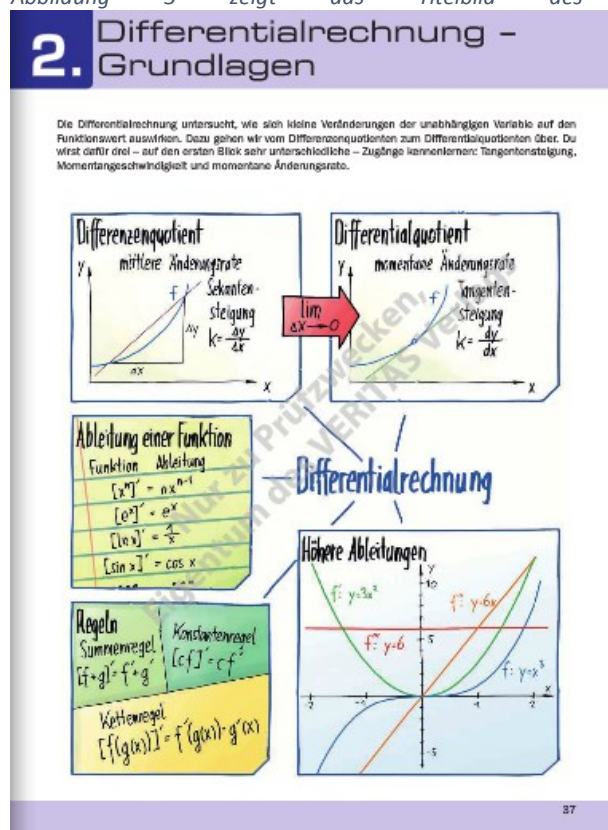 Abbildung 3 zeigt das Titelbild des
2.
Differentialrechnung –
Grundlagen
Die Differentialrechnung untersucht, wie sich kleine Veränderungen der unabhängigen Variable auf den
Funktionswert auswirken. Dazu gehen wir vom Differenzenquotienten zum Differentialquotienten über. Du
wirst dafür drei – auf den ersten Blick sehr unterschiedliche – Zugänge kennenlernen: Tangentensteigung,
Momentangeschwindigkeit und momentane Änderungsrate.
Differenzenquotient
mittlere Änderungsrate
y
f
Sekanten-
steigung
k = Δy/Δx
Δy
Δx
x
lim
Δx→0
Differentialquotient
momentane Änderungsrate
y
f
Tangenten-
steigung
k = dy/dx
x
Ableitung einer Funktion
Funktion Ableitung
[xⁿ]' = nxⁿ⁻¹
[eˣ]' = eˣ
[ln x]' = 1/x
[sin x]' = cos x
Differentialrechnung
Regeln
Summenregel
[f+g]' = f'+g'
Konstantenregel
[cf]' = cf'
Kettenregel
[f(g(x))]' = f'(g(x))·g'(x)
Höhere Ableitungen
y
10
f': y=3x²
f'': y=6x
f''': y=6
5
f: y=x³
x
-2
2
-5
Nur zu Prüfzwecken,
Eigentum des VERITAS Verlags
37